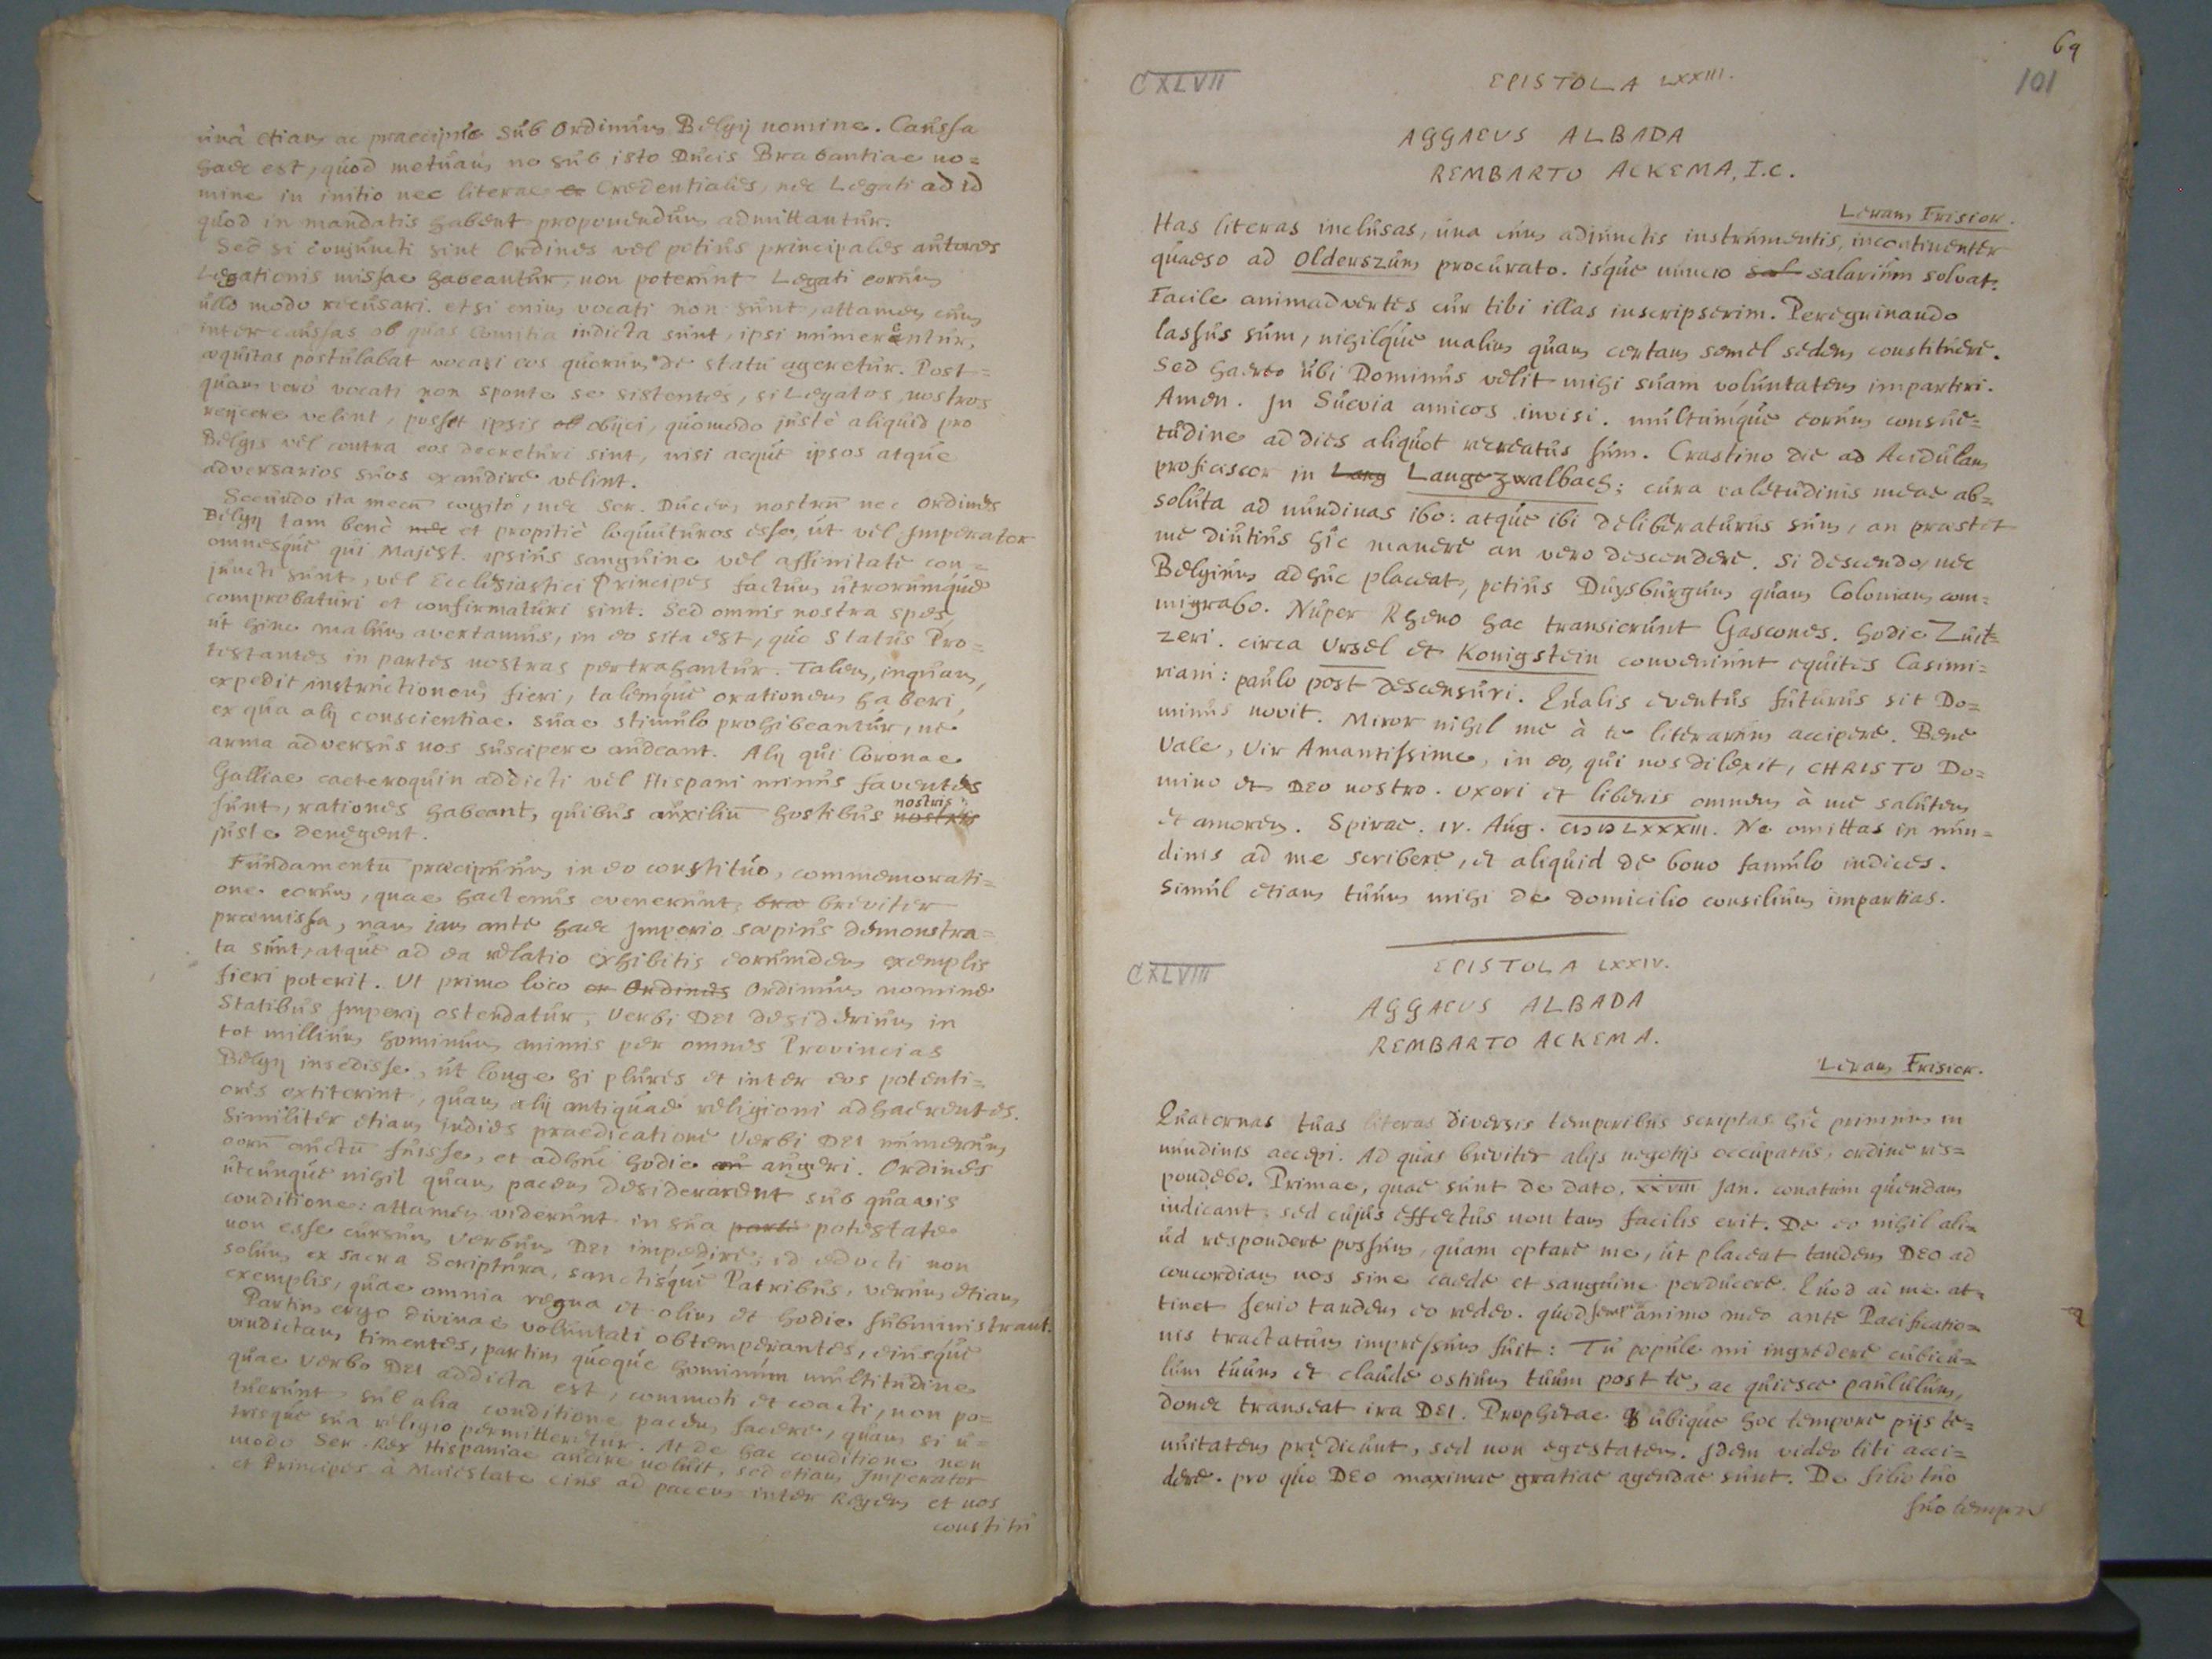 unâ etiam ac praecipue sub Ordinum Belgij nomine. Caussa
haec est, quod metuam ne sub isto Ducis Brabantiae no=
mine in initio nec literae er Credentiales, nec Legati ad id
quod in mandatis habent proponendum admittantur.
Sed si conjuncti sint Ordines vel potius principales autores
Legationis missae habeantur, non poterunt Legati eorum
ullo modo recusari. etsi enim vocati non sunt, attamen cum
inter caussas ob quas Comitia indicta sunt, ipsi numerentur,
aequitas postulabat vocari eos quorum de statu ageretur. Post=
quam verò vocati non sponte se sistentes, si Legatos nostros
reijcere velint, posset ipsis ob obijci, quomodo justè aliquid pro
Belgis vel contra eos decreturi sint, nisi aeque ipsos atque
adversarios suos exaudire velint.
Secundo ita mecū cogito, nec Ser. Ducem nostrū nec Ordines
Belgij tam benè nec et propitiè loquuturos esse, ut vel Imperator
omnesque qui Majest. ipsius sanguine vel affinitate con=
juncti sunt, vel Ecclesiastici Principes factum utrorumque
comprobaturi et confirmaturi sint. Sed omnis nostra spes,
ut hinc malum avertamus, in eo sita est, quo Status Pro=
testantes in partes nostras pertrahantur. Talem, inquam,
expedit instructionem fieri, talemque orationem haberi,
ex qua alij conscientiae suae stimulo prohibeantur, ne
arma adversus nos suscipere audeant. Alij qui Coronae
Galliae caeteroquin addicti vel Hispani minus faventes
sunt, rationes habeant, quibus auxiliū hostibus nostris nostris
juste denegent.
Fundamentū praecipuum in eo constituo, commemorati=
one eorum, quae hactenus evenerunt, bre breviter
praemissa, nam jam ante haec Imperio saepius demonstra=
ta sunt, atque ad ea relatio exhibitis eorumdem exemplis
fieri poterit. Ut primo loco or Ordines Ordinum nomine
Statibus Imperij ostendatur, Verbi DEI desiderium in
tot millium hominum animis per omnes Provincias
Belgij insedisse, ut longe hi plures et inter eos potenti=
ores extiterint, quam alij antiquae religioni adhaerentes.
Similiter etiam indies praedicatione Verbi DEI numerum
eorū auctū fuisse, et adhuc hodie au augeri. Ordines
utcunque nihil quam pacem desiderarent sub quavis
conditione: attamen viderunt in sua parti potestate
non esse cursum Verbum DEI impedire; id edocti non
solum ex sacra Scriptura, sanctisque Patribus, verum etiam
exemplis, quae omnia regna et olim et hodie subministrant.
Partim ergo divinae voluntati obtemperantes, eiusque
vindictam timentes, partim quoque hominum multitudine
quae Verbo DEI addicta est, commoti et coacti, non po=
tuerunt sub alia conditione pacem facere, quam si u=
trisque sua religio permitteretur. At de hac conditione non
modo Ser. Rex Hispaniae audire noluit, sed etiam Imperator
et Principes à Maiestate eius ad pacem inter Regem et nos
constitu
69
101
CXLVII
EPISTOLA LXXIII.
AGGAEUS ALBADA
REMBARTO ACKEMA, I.C.
Leram Frisior.
Has literas inclusas, una cum adjunctis instrumentis, incontinenter
quaeso ad Olderszum procurato. isque nuncio sal salarium solvat.
Facile animadvertes cur tibi illas inscripserim. Peregrinando
lassus sum, nihilque malim quam certam semel sedem constituere.
Sed haereo ubi Dominus velit mihi suam voluntatem impartiri.
Amen. In Suevia amicos invisi. multumque eorum consue=
tudine ad dies aliquot recreatus sum. Crastino die ad Acidulam
proficiscor in Lang Langezwalbach; cura valetudinis meae ab=
soluta ad nundinas ibo: atque ibi deliberaturus sum, an praestet
me diutius hîc manere an vero descendere. Si descendo, nec
Belgium adhuc placeat, potius Duysburgum quam Coloniam com=
migrabo. Nuper Rheno hac transierunt Gascones. hodie Zuit=
zeri. circa Ursel et Konigstein conveniunt equites Casimi=
riani: paulo post descensuri. Qualis eventus futurus sit Do=
minus novit. Miror nihil me à te literarum accipere. Bene
Vale, Vir Amantissime, in eo, qui nos dilexit, CHRISTO Do=
mino et DEO nostro. Uxori et liberis omnem à me salutem
et amorem. Spirae. IV. Aug. CIƆ IƆ LXXXIII. Ne omittas in nun=
dinis ad me scribere, et aliquid de bono famulo indices.
Simul etiam tuum mihi de domicilio consilium impartias.
CXLVIII
EPISTOLA LXXIV.
AGGAEUS ALBADA
REMBARTO ACKEMA.
Leram Frisior.
Quaternas tuas literas diversis temporibus scriptas hîc primum in
nundinis accepi. Ad quas breviter alijs negotijs occupatus, ordine res=
pondebo. Primae, quae sunt de dato, XXVIII Jan. conatum quendam
indicant: sed cujus effectus non tam facilis erit. De eo nihil ali=
ud respondere possum, quam optare me, ut placeat tandem DEO ad
concordiam nos sine caede et sanguine perducere. Quod ad me at=
tinet serio tandem eo redeo. quod semp animo meo ante Pacificatio=
nis tractatum impressum fuit: Tu popule mi ingredere cubicu=
lum tuum et claude ostium tuum post te, ac quiesce paululum,
donec transeat ira DEI. Prophetae ubique hoc tempore pijs te=
nuitatem prędicunt, sed non egestatem. Idem video tibi acci=
dere. pro quo DEO maximae gratiae agendae sunt. De filio tuo
suo tempore